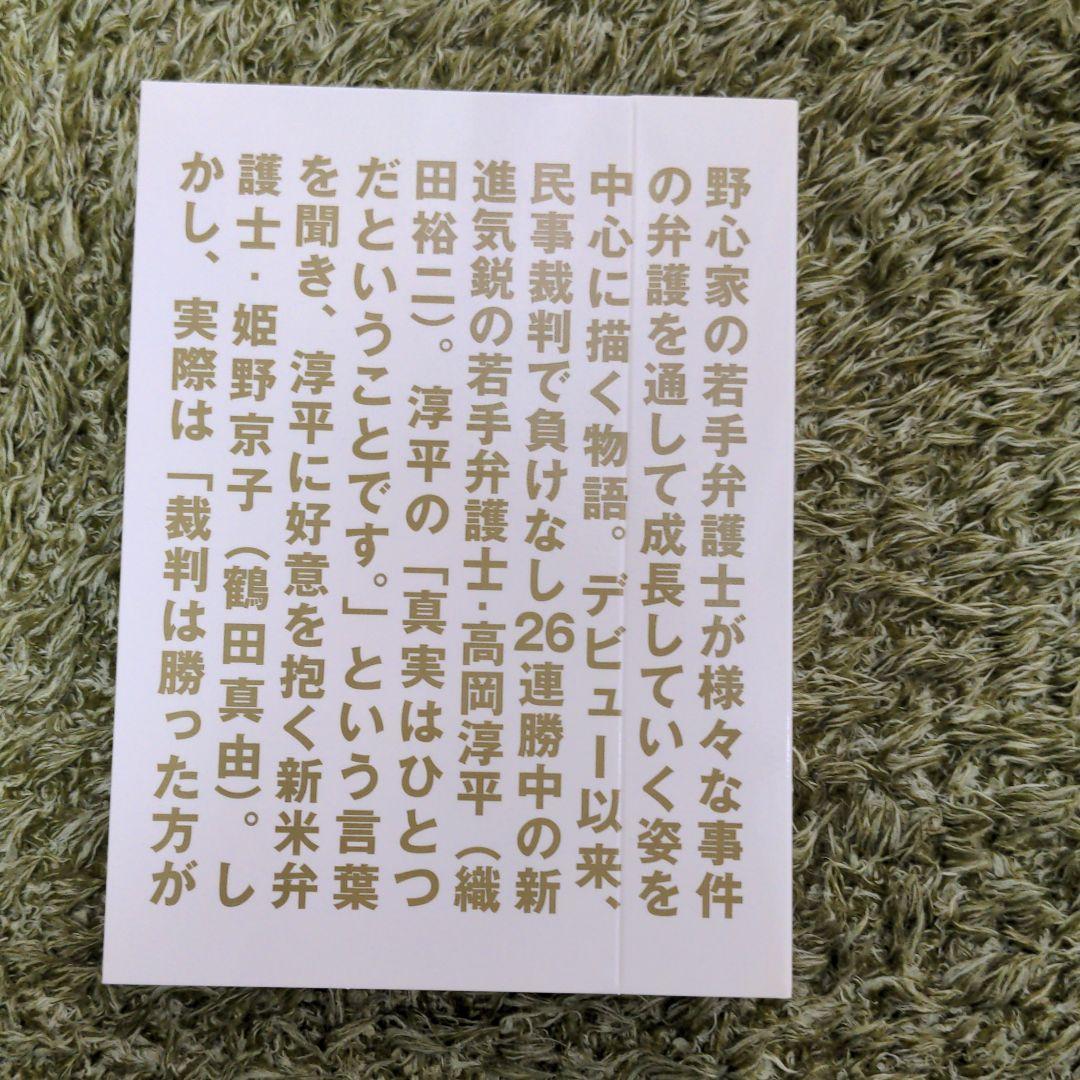 野心家の若手弁護士が様々な事件
の弁護を通して成長していく姿を
中心に描く物語。デビュー以来、
民事裁判で負けなし26連勝中の新
進気鋭の若手弁護士・高岡淳平（織
田裕二）。淳平の「真実はひとつ
だということです。」という言葉
を聞き、淳平に好意を抱く新米弁
護士・姫野京子（鶴田真由）。し
かし、実際は「裁判は勝った方が